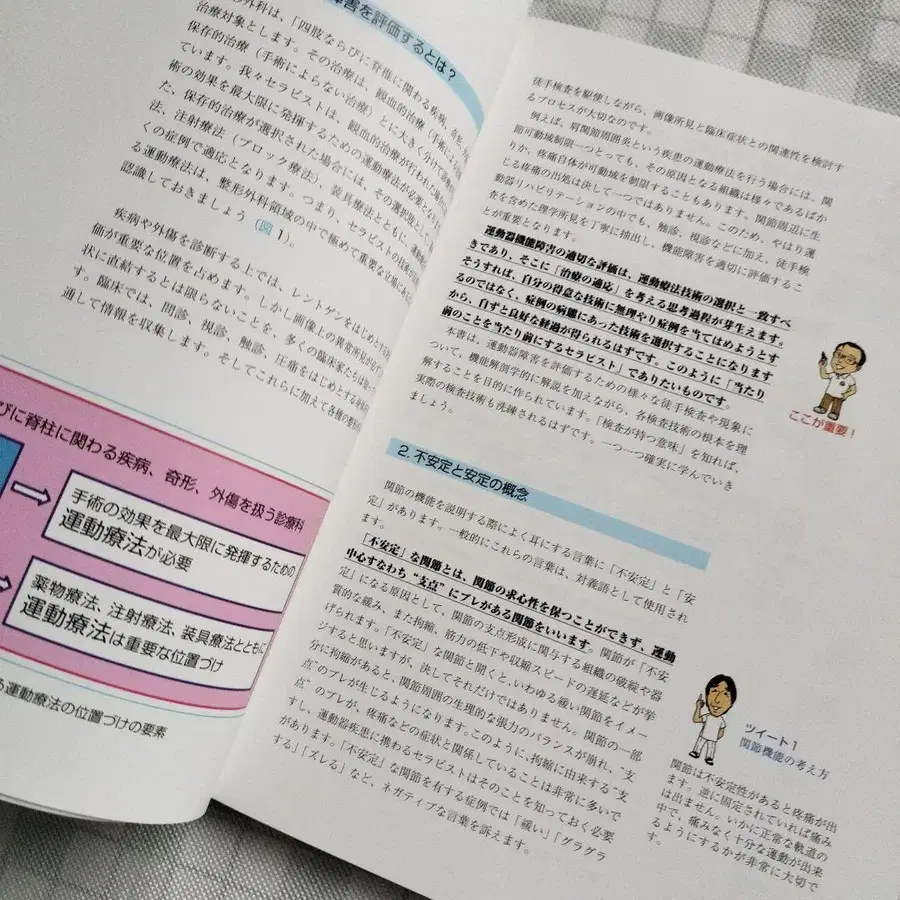 障害を評価するとは?
形外科は、「四肢ならびに脊椎に関わる疾病、奇形、
治療対象とします。その治療は、観血的治療(手術による
保存的治療(手術によらない治療)とに大きく分けて
ています。我々セラピストは、観血的治療が行われた場合には、
術の効果を最大限に発揮するための運動療法が必要となり
た、保存的治療が選択された場合には、その選択肢として
法、注射療法(ブロック療法)、装具療法とともに、運動
くの症例で適応となります。つまり、セラピストの技術
る運動療法は、整形外科領域の中で極めて重要な立場に
認識しておきましょう(図1)。
疾病や外傷を診断する上では、レントゲンをはじめとする
価が重要な位置を占めます。しかし画像上の異常所見が必ず
状に直結するとは限らないことを、多くの臨床家たちは
す。臨床では、問診、視診、触診、圧痛をはじめとする
通して情報を収集します。そしてこれらに加えて各種の
びに脊柱に関わる疾病、奇形、外傷を扱う診療科
手術の効果を最大限に発揮するための
運動療法が必要
薬物療法、注射療法、装具療法とともに
運動療法は重要な位置づけ
る運動療法の位置づけの要素
徒手検査を駆使しながら、画像所見と臨床症状との関連性を検討す
るプロセスが大切なのです。
例えば、肩関節周囲炎という疾患の運動療法を行う場合には、関
節可動域制限一つとっても、その原因となる組織は様々であるばか
りか、疼痛自体が可動域を制限することもあります。関節周辺に生
じる疼痛の出処は決して一つではありません。このため、やはり運
動器リハビリテーションの中でも、触診、視診などに加え、徒手検
査を含めた理学所見を丁寧に抽出し、機能障害を適切に評価するこ
とが重要となります。
運動器機能障害の適切な評価は、運動療法技術の選択と一致すべ
きであり、そこに「治療の適応」を考える思考過程が芽生えます。
そうすれば、自分の得意な技術に無理やり症例を当てはめようとす
るのではなく、症例の病態にあった技術を選択することになります
から、自ずと良好な経過が得られるはずです。このように「当たり
前のことを当たり前にするセラピスト」でありたいものです。
本書は、運動器障害を評価するための様々な徒手検査や現象に
ついて、機能解剖学的に解説を加えながら、各検査技術の根本を理
解することを目的に作られています。「検査が持つ意味」を知れば、
実際の検査技術も洗練されるはずです。一つ一つ確実に学んでいき
ましょう。
ここが重要!
2. 不安定と安定の概念
関節の機能を説明する際によく耳にする言葉に「不安定」と「安
定」があります。一般的にこれらの言葉は、対義語として使用され
ます。
「不安定」な関節とは、関節の求心性を保つことができず、運動
中心すなわち“支点”にブレがある関節をいいます。関節が「不安
定」になる原因として、関節の支点形成に関与する組織の破綻や器
質的な緩み、また拘縮、筋力の低下や収縮スピードの遅延などが挙
げられます。「不安定」な関節と聞くと、いわゆる緩い関節をイメー
ジすると思いますが、決してそれだけではありません。関節の一部
分に拘縮があると、関節周囲の生理的な張力のバランスが崩れ、“支
点”のブレが生じるようになります。このように、拘縮に由来する“支
点”のブレが、疼痛などの症状と関係していることは非常に多いで
すし、運動器疾患に携わるセラピストはそのことを知っておく必要
があります。「不安定」な関節を有する症例では「緩い」「グラグラ
する」「ズレる」など、ネガティブな言葉を訴えます。
ツイート1
関節機能の考え方
関節は不安定性があると疼痛が出
ます。逆に固定されていれば痛み
は出ません。いかに正常な軌道の
中で、痛みなく十分な運動が出来
るようにするかが非常に大切で
す。